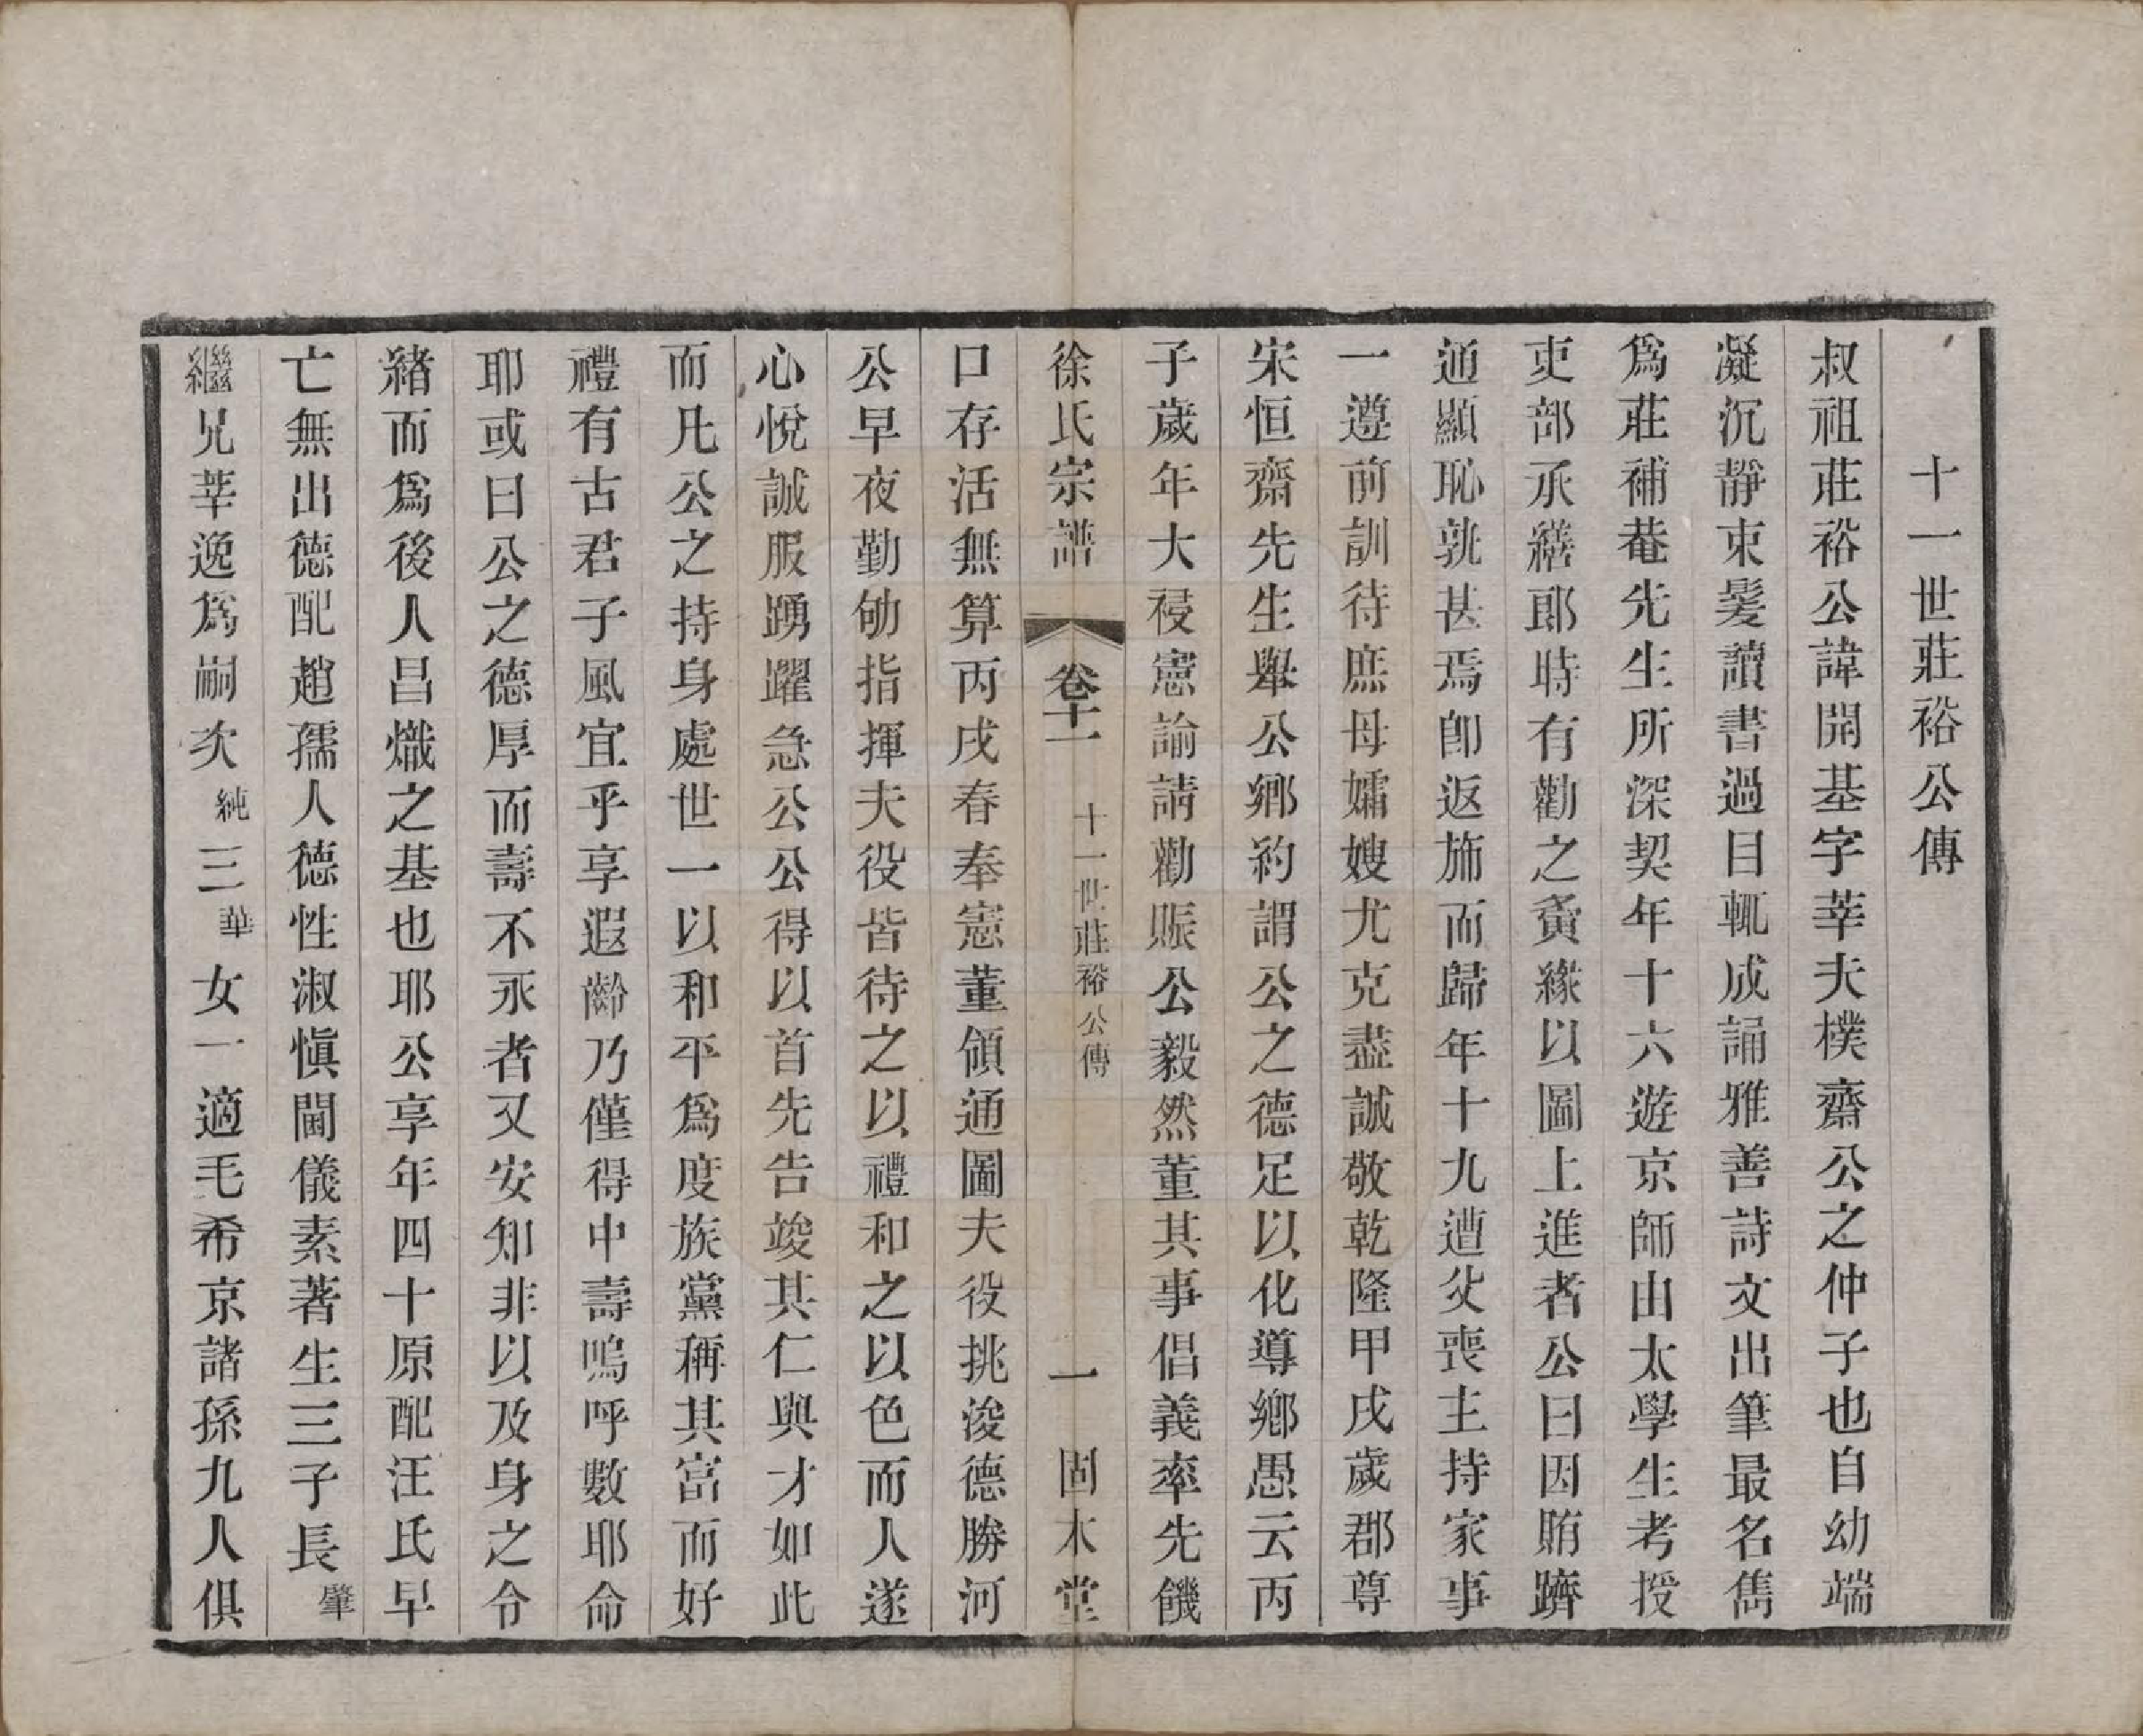 十一世莊裕公傳
叔祖莊裕公諱開基字莘夫樸齋公之仲子也自幼端
凝沉靜束髮讀書過目輒成誦雅善詩文出筆最名雋
爲莊補菴先生所深契年十六遊京師由太學生考授
吏部承繕郎時有勸之夤緣以圖上進者公曰因賄躋
通顯恥孰甚焉卽返斾而歸年十九遭父喪主持家事
一遵前訓待庶母孀嫂尤克盡誠敬乾隆甲戌歲郡尊
宋恒齋先生舉公鄉約謂公之德足以化導鄉愚云丙
子歲年大祲憲諭請勸賑公毅然董其事倡義率先饑
徐氏宗譜 卷十一 十一世莊裕公傳 一 固本堂
口存活無算丙戌春奉憲董領通圖夫役挑浚德勝河
公早夜勤劬指揮夫役皆待之以禮和之以色而人遂
心悅誠服踴躍急公公得以首先告竣其仁與才如此
而凡公之持身處世一以和平爲度族黨稱其富而好
禮有古君子風宜乎享遐齡乃僅得中壽嗚呼數耶命
耶或曰公之德厚而壽不永者又安知非以及身之令
緒而爲後人昌熾之基也耶公享年四十原配汪氏早
亡無出德配趙孺人德性淑愼閫儀素著生三子長肇
繼兄莘逸爲嗣次純三華女一適毛希京諸孫九人俱